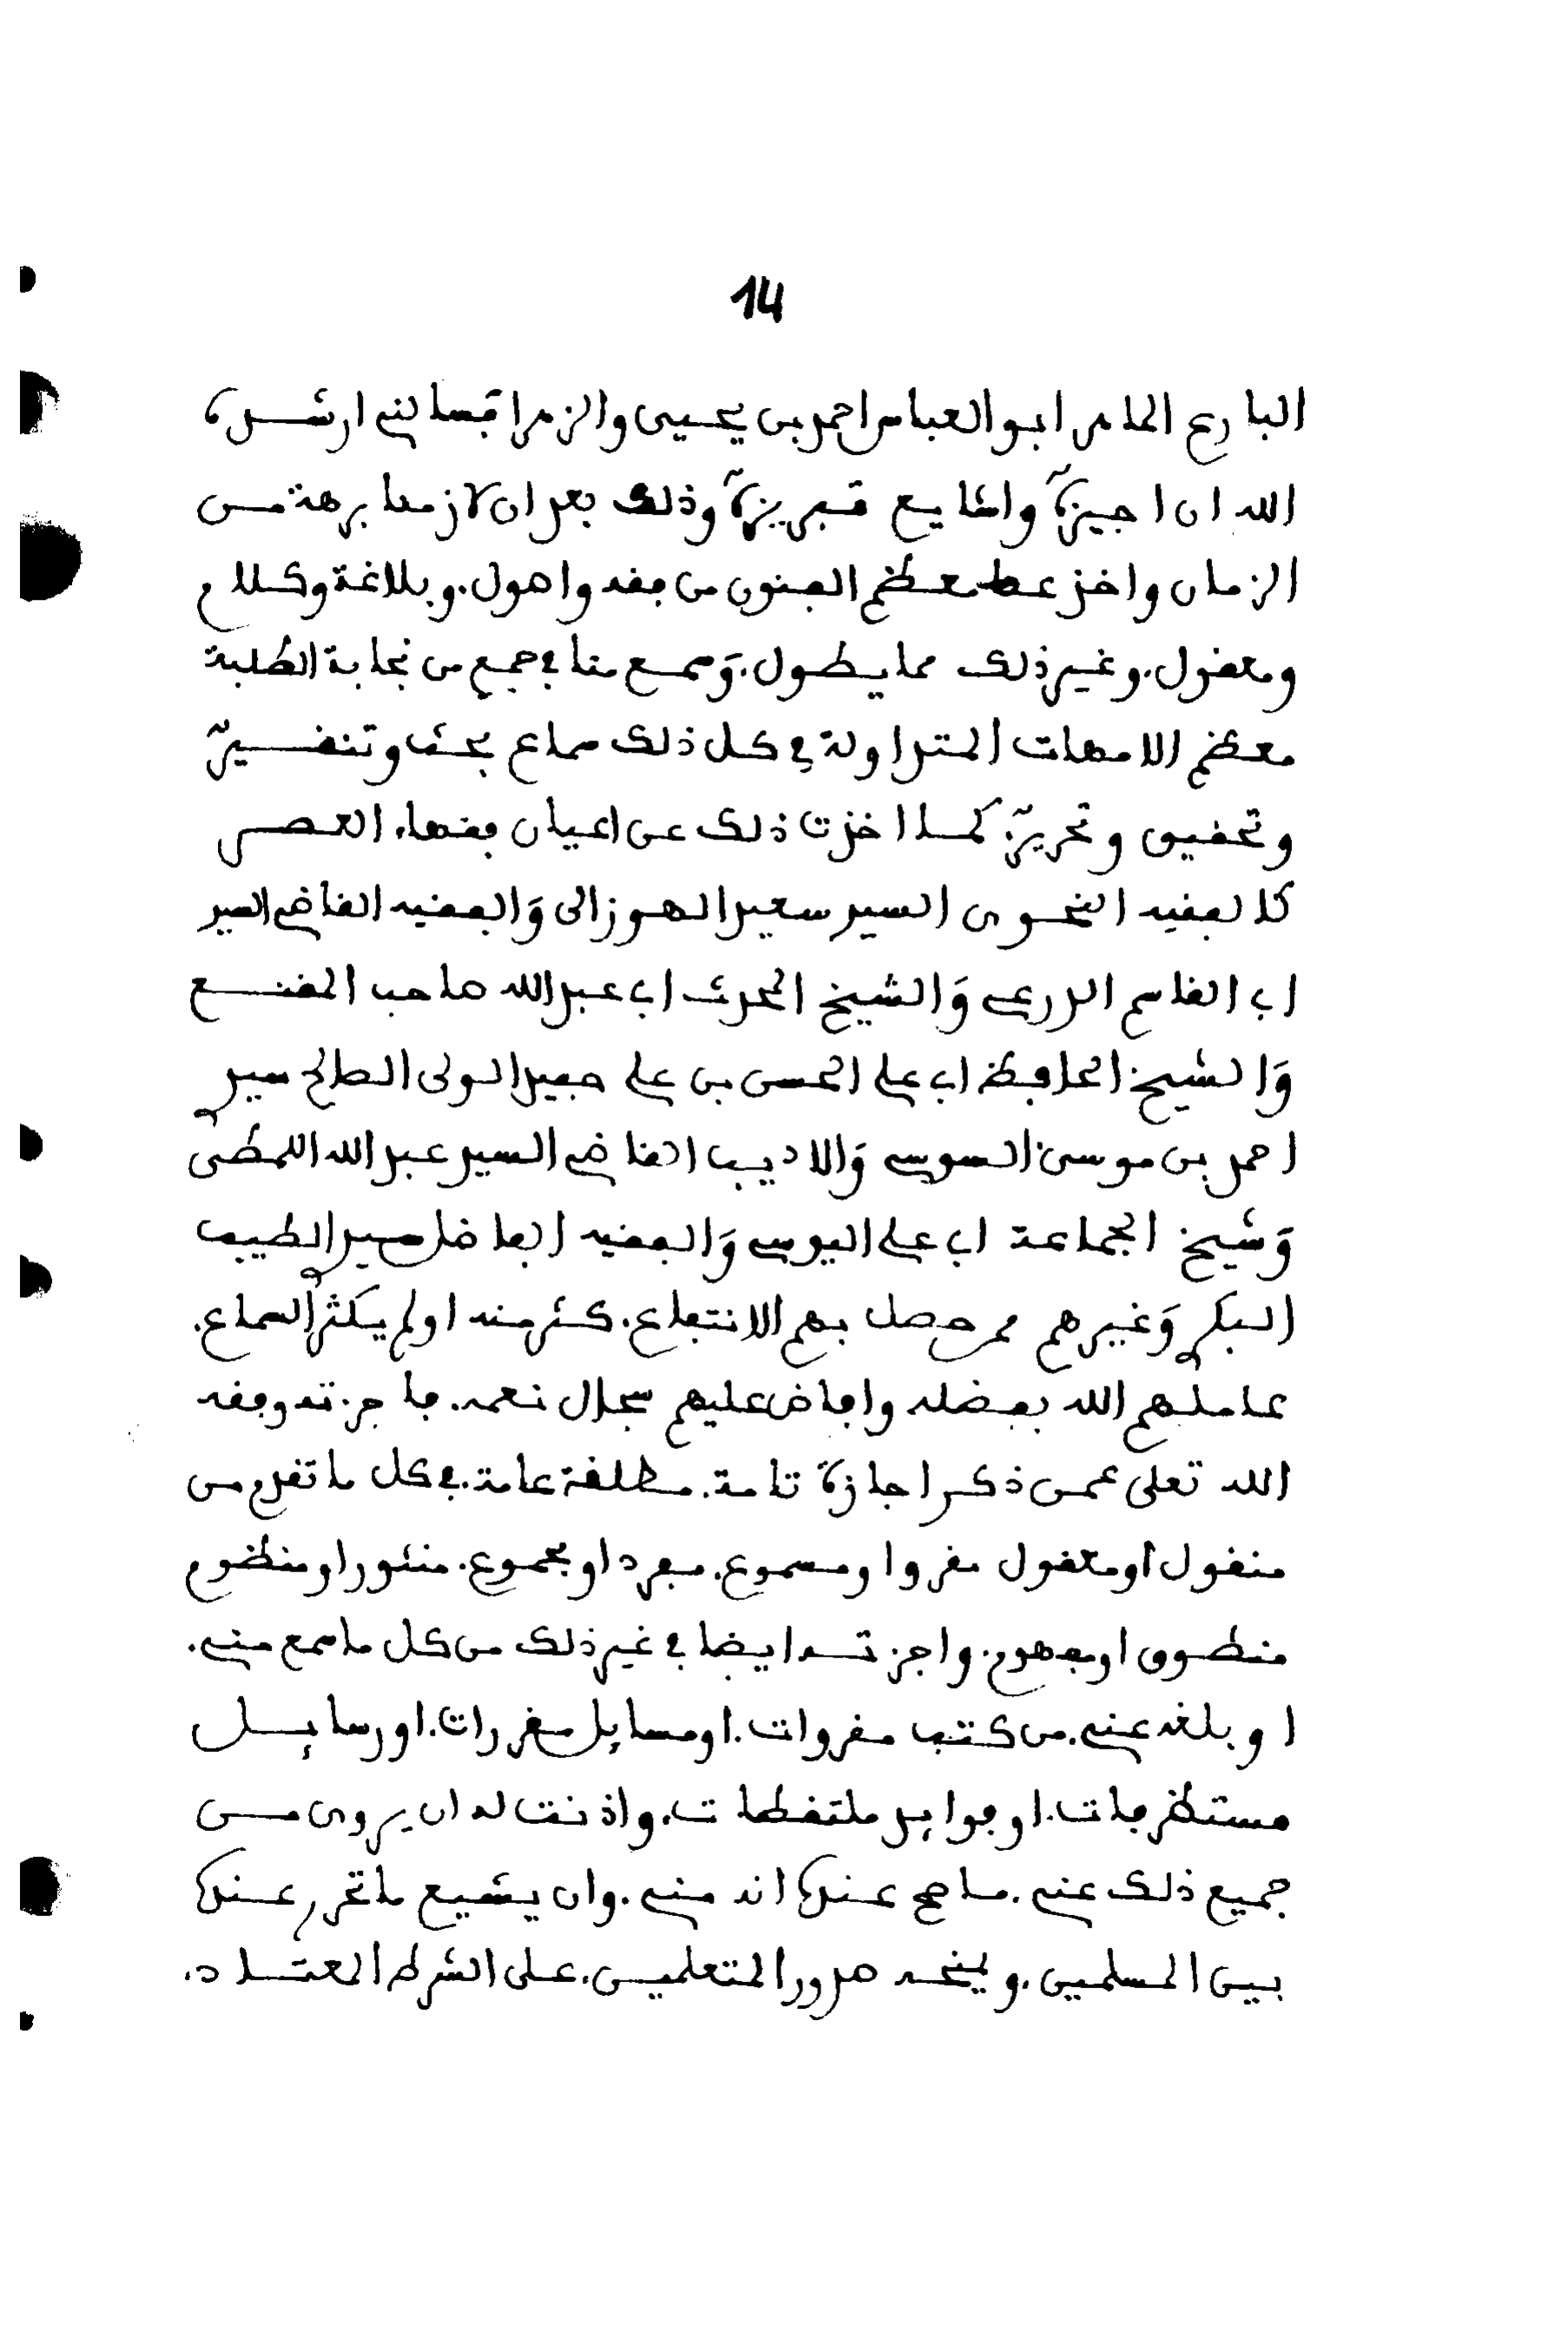 14
البارع الماهر ابو العباس احمد بن يحيى والزهرا فسالني ارشده
الله ان اجيزه واشايع فبريزه وذلك بعد ان لازمنا برهة من
الزمان واخذ عنا معظم الفنون من فقه واصول. وبلاغة وكلام
ومعقول. وغير ذلك مما يطول. وَسمع منا في جمع من نجابة الطلبة
معظم الامهات المتداولة في كل ذلك سماع بحث وتنقير
وتحقيق وتحرير. كما اخذت ذلك عن اعيان فقهاء العصر
كالفقيه النحوى السيد سعيد الهوزالى وَالفقيه القاضي السيد
ابي القاسم الدرعي وَالشيخ المحدث ابي عبد الله صاحب المقنع
وَالشيخ الحافظ ابي علي الحسن بن علي حفيد الولى الصالح سيدي
احمد بن موسى السوسي وَالاديب القاضي السيد عبد الله اللمطى
وَشيخ الجماعة ابي علي اليوسي وَالفقيه الفاضل سيدي الطيب
البكري وَغيرهم ممن حصل بهم الانتفاع. كثر منه او لم يكثر السماع.
عاملهم الله بفضله وافاض عليهم سجال نعمه. فاجزته وفقه
الله تعلى عمن ذكر اجازة تامة. مطلقة عامة. في كل ما تقدم من
منقول او معقول مقروا ومسموع. مفرد او مجموع. منثور او منظوم
منطوق او مفهوم. واجزته ايضا في غير ذلك من كل ما سمع مني.
او بلغه عني. من كتب مقروات. او مسايل مقررات. او رسايل
مستظرفات. او فوايد ملتقطات. واذنت له ان يروى من
جميع ذلك عني. ما صح عنده انه مني. وان يشيع ما تحرر عنده
بين المسلمين. ويمنحه صدور المتعلمين. على الشرط المعتاد.